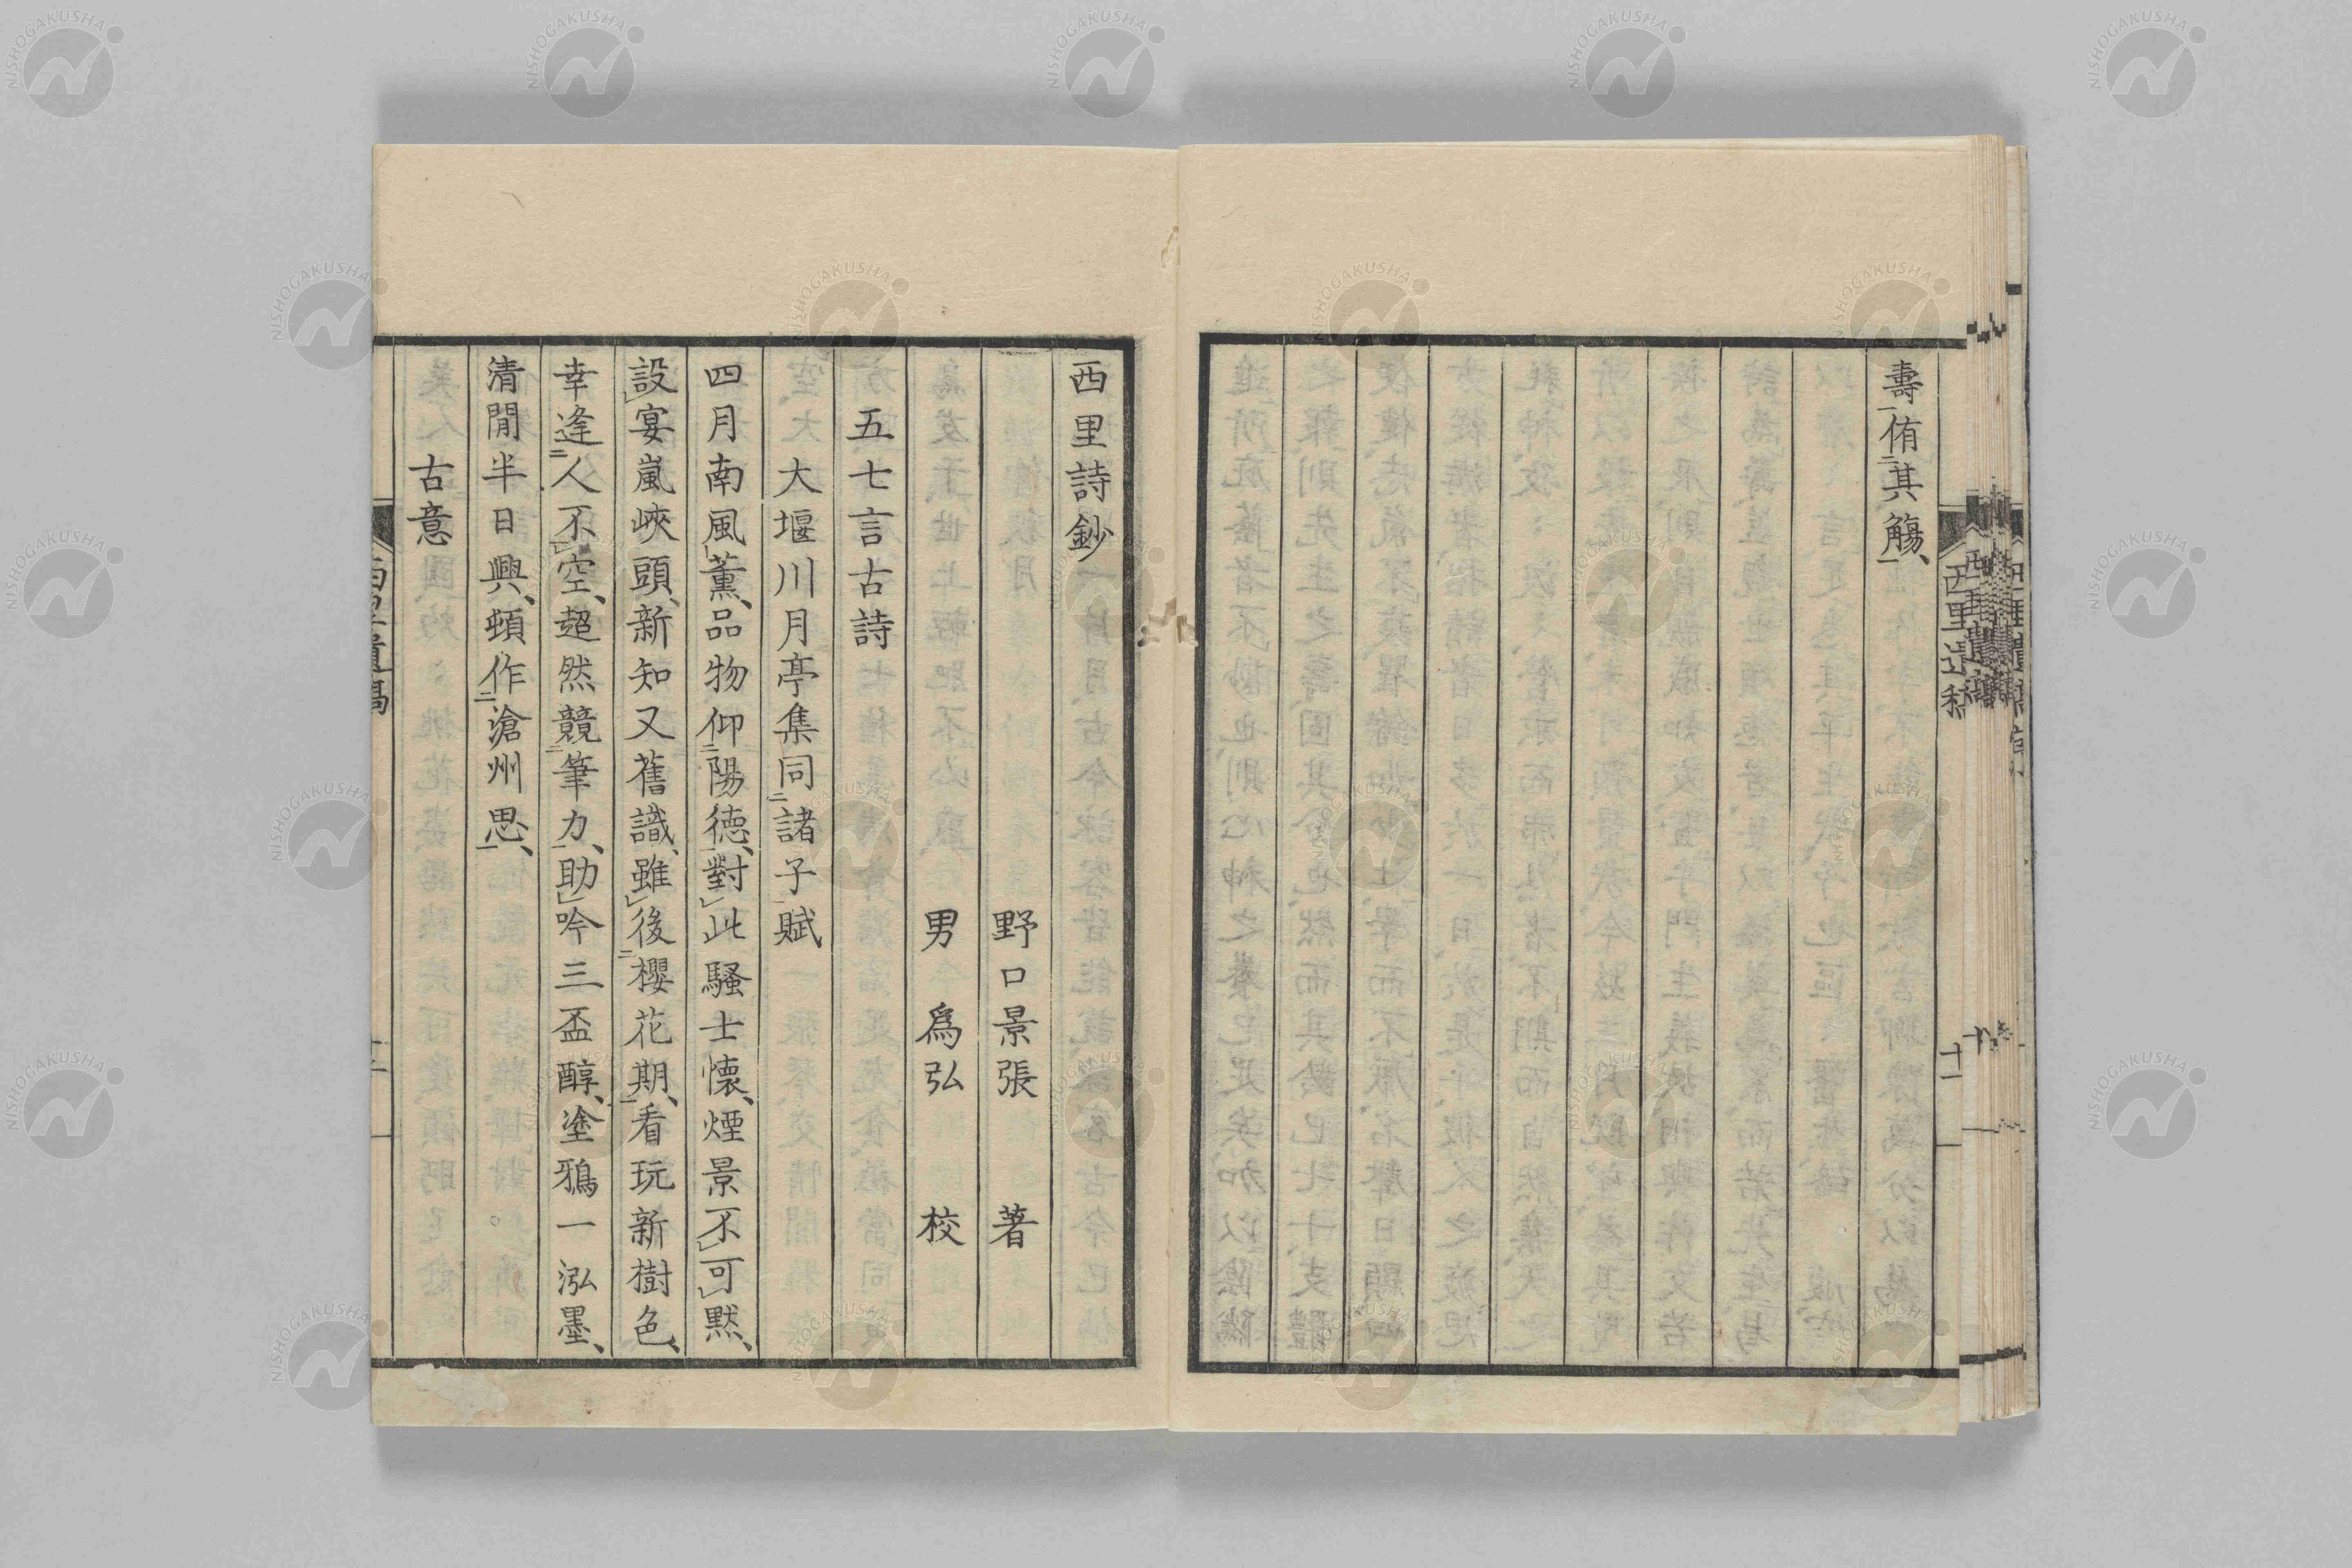 壽侑其觴、
西里遺稿
十一
西里詩鈔
野口景張 著
男 爲弘 校
五七言古詩
大堰川月亭集同諸子賦
四月南風薰、品物仰陽德、對此騷士懷、煙景不可默、
設宴嵐峽頭、新知又舊識、雖後櫻花期、看玩新樹色、
幸逢人不空、超然競筆力、助吟三盃醇、塗鴉一泓墨、
清閒半日興、頓作滄州思、
古意
NISHOGAKUSHA